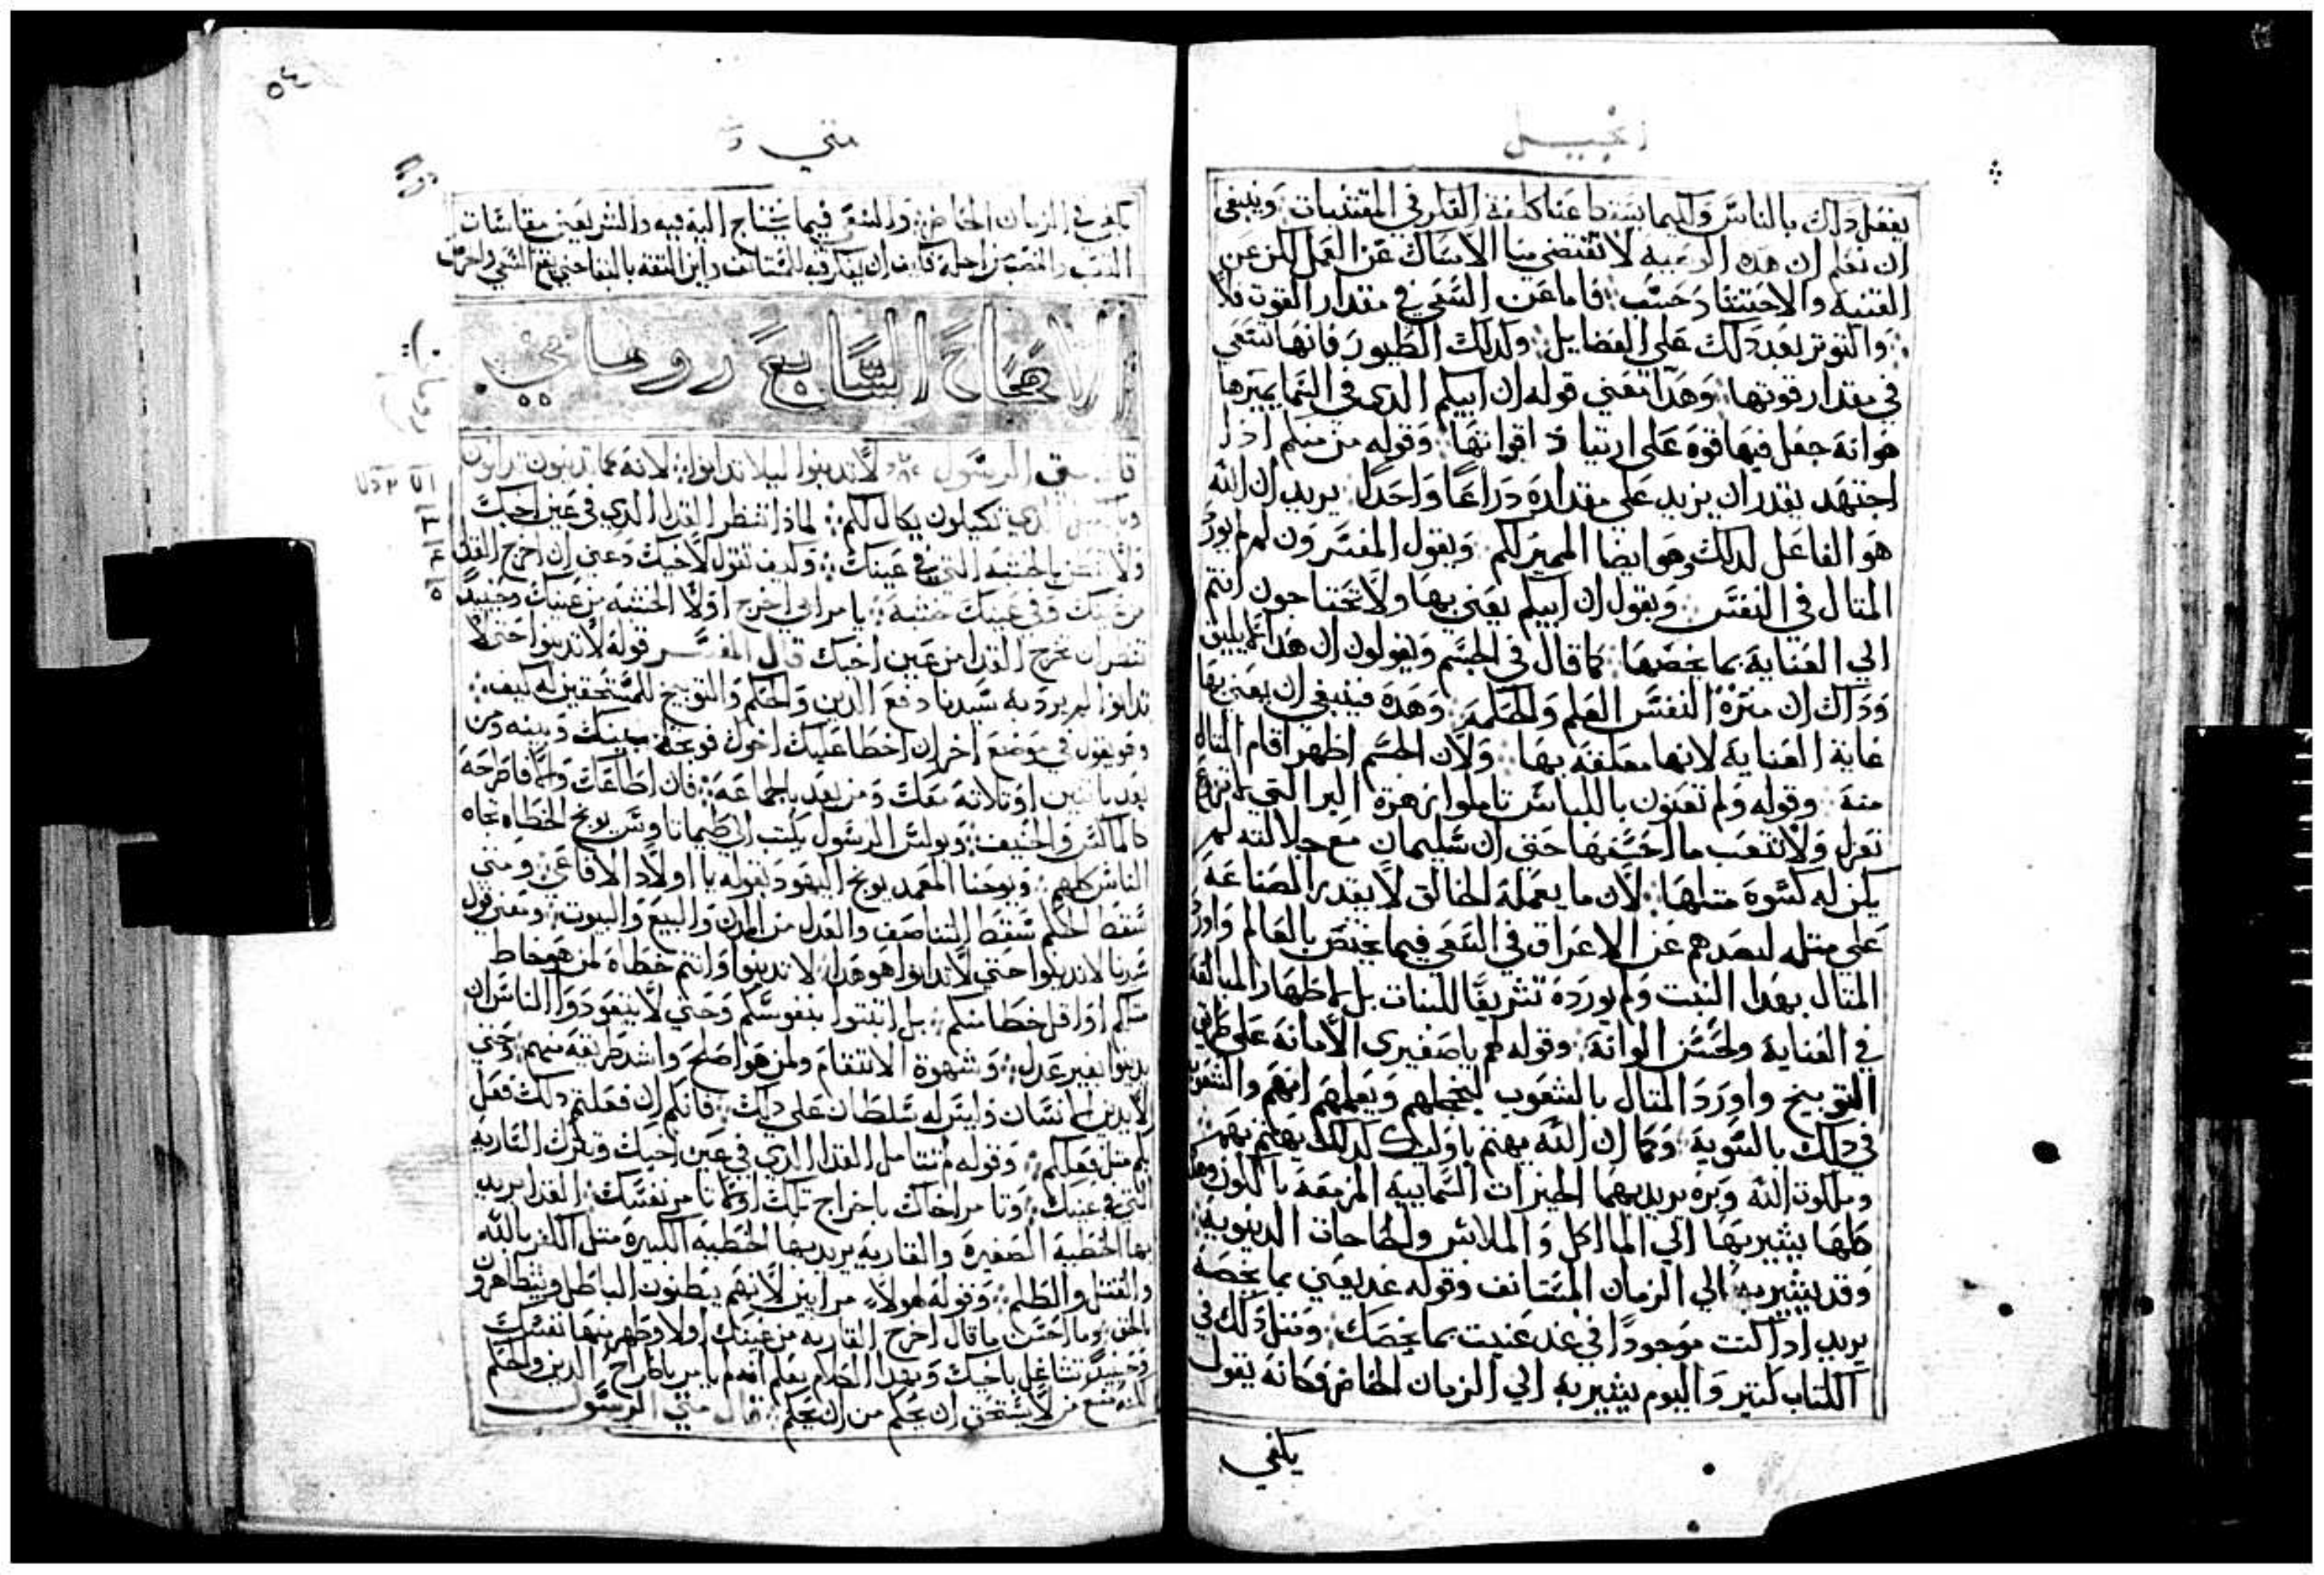 انجيل
يفعل دلك بالناس وانما يستدعنا كلفة الفكر في المقتنيات وينبغي
ان تعلم ان هده الوصيه لا تقتضي منا الامساك عن العمل لكن عن
القنيه والاحتشاد حسب فاما عن السعي في مقدار القوت فلا
والتوتر بعد دلك علي الفضايل ولدلك الطيور فانها تسعي
في مقدار قوتها وهدا معني قوله ان ابيكم الدي في السما يميرها
هو انه جعل فيها قوه علي ارتياد اقواتها وقوله من منكم ادا
اجتهد يقدر ان يزيد علي مقداره دراعا واحدا يريد ان الله
هو الفاعل لدلك وهو ايضا المميز لكم ويقول المفسرون لم لم يورد
المتال في النفس ويقول ان ابيكم يعني بها ولا تحتاجون انتم
الي العنايه بما يخصها كما قال في الجسم ويقولون ان هدا لا يليق
ودلك ان ميزة النفس العلم والحكمه وهده فينبغي ان يعني بها
غاية العنايه لانها معلقه بها ولان الجسم اظهر اقام المتال
منه وقوله ولم تعنون باللباس تاملوا زهرة البر التي لا
تغزل ولا تتعب ما احسنها حتي ان سليمان مع جلالته لم
يكن له كسوه متلها لان ما يعمله الخالق لا يقدر الصناعه
علي متله ليصدهم عن الاغراق في السعي فيما يختص بالعالم واورد
المتال بهدا النبت ولم يورده تشريفا للنبات بل لاظهار المبالغه
في العنايه ولحسن الوانه وقوله لهم يا صغيري الامانه علي طريق
التوبيخ واورد المتال بالشعوب ليخجلهم ويعلمهم انهم والشعوب
في دلك بالسويه وكما ان الله يهتم باوليك كدلك يهتم بهم
وملكوت الله وبره يريد بهما الخيرات السماييه المزمعه بالكون وهده
كلها يشير بها الي الماكل والملابس والحاجات الدنيويه
وقد يشير به الي الزمان المستانف وقوله غد يعني بما يخصه
يريد ادا كنت موجودا في غد عنيت بما يخصك ومتل دلك في
الكتاب كتير واليوم يشير به الي الزمان الحاضر فكانه يقول
يكفي
٥٤
متي
يكفي في الزمان الحاضر والسعي فيما يحتاج اليه فيه والشر يعني مقاسات
التعب والنصب من اجله
الاصحاح السابع روحاني
قال متي الرسول لا تدينوا ليلا تدانوا لانه كما تدينون تدانون
وبالكيل الدي تكيلون يكال لكم لمادا تنظر القدا الدي في عين اخيك
ولا تفطن بالخشبه التي في عينك وكيف تقول لاخيك دعني ان اخرج القدا
من عينك وفي عينك خشبه يا مرايي اخرج اولا الخشبه من عينك وحينيد
تنظر ان تخرج القدا من عين اخيك قال المفسر قوله لا تدينوا حتي لا
تدانوا لم يرد به سيدنا دفع الدين والحكم والتوبيخ للمستحقين له كيف
وهو يقول في موضع اخر ان اخطا عليك اخوك فوبخه بينك وبينه ومن
بعد باتنين او تلاته معك ومن بعد بالجماعه فان اطاعك والا فاطرحه
كالماكس والحنيف وبولس الرسول يكتب الي طيماتاوس بوبخ الخطاه تجاه
الناس كلهم ويوحنا المعمد يوبخ اليهود بقوله يا اولاد الافاعي ومتي
سقط الحكم سقط التناصف والعدل من المدن والبيع والبيوت ومعني قول
سيدنا لا تدينوا حتي لا تدانوا هو هدا لا تدينوا وانتم خطاه لمن هو خاط
متلكم او اقل خطا منكم بل ابتدوا بنفوسكم وحتي لا يتعودوا الناس ان
يدينوا بغير عدل وشهوة الانتقام ولمن هو اصلح واشد طريقه منهم وحتي
لا يدين انسان وليس له سلطان علي دلك فانكم ان فعلتم دلك فعل
بكم متل فعلكم وقوله لم تتامل القدا الدي في عين اخيك وتترك الساريه
التي في عينك وتامر اخاك باخراج تلك القدا يريد
بها الخطيه الصغيره والساريه يريد بها الخطيه الكبيره متل الكفر بالله
والقتل والظلم وقوله لهولاء مرايين لانهم يبطنون الباطل ويتظاهرون
بالحق وما احسن ما قال اخرج الساريه من عينك اولا وطهر منها نفسك
وحينيد تتشاغل باخيك وبهدا الكلام يعلم انه لم يامر باطراح الدين والحكم
لكنه منع من لا يستحق ان يحكم من ان يحكم قال متي الرسول